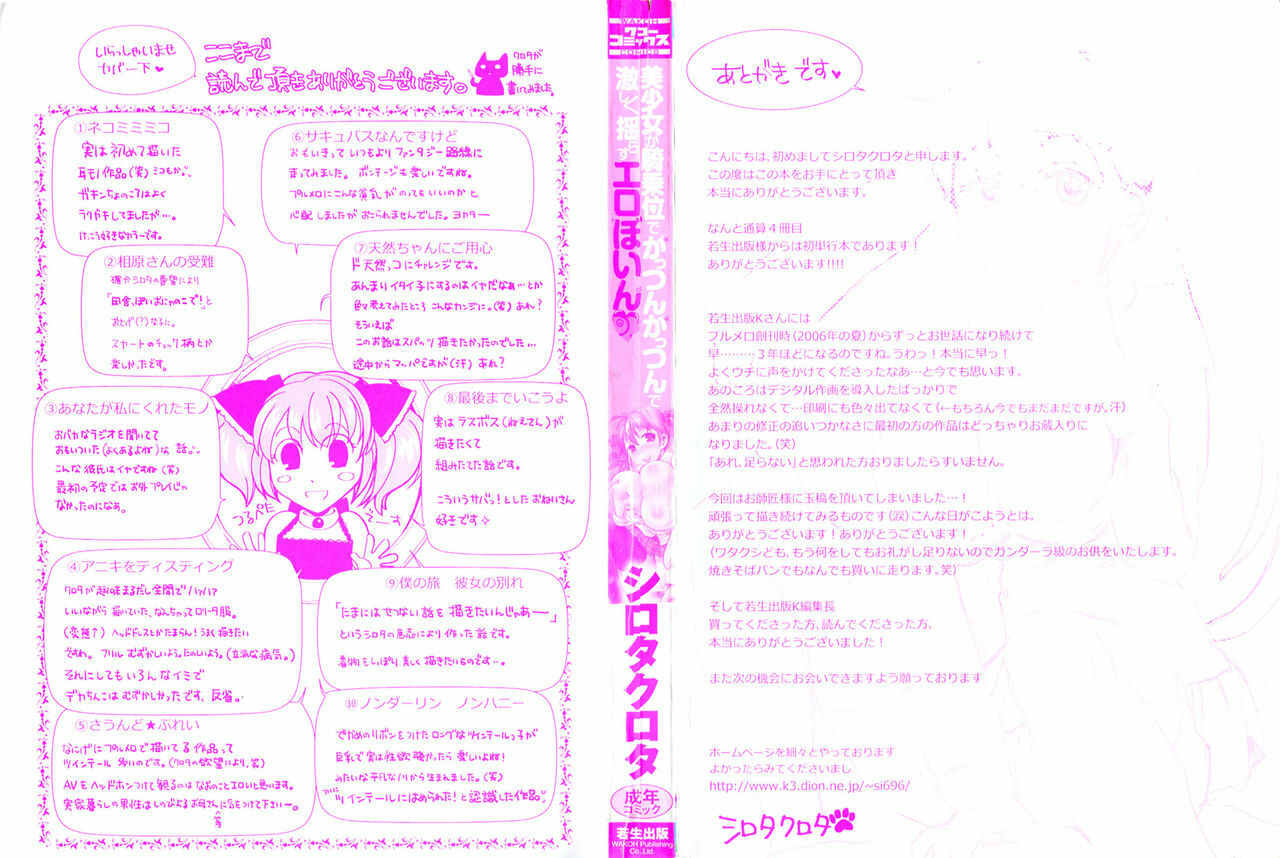 いらっしゃいませ
カバー下♥
ここまで
読んで頂きありがとうございます。
クロタが
勝手に
書いてみました。
①ネコミミミコ
実は初めて描いた
耳モノ作品(笑)ミコもか。
ガキンちょのころはよく
ラクガキしてましたが…。
けっこう好きなカラーです。
②相原さんの受難
確かシロタの要望により
「田舎っぽいおにゃのこで!」と
おとげ(?)なるに。
スカートのチェック柄とか
楽しかったです。
③あなたが私にくれたモノ
おバカなラジオを聞いてて
おもいついた(よくあるよね)な話。
こんな彼氏はイヤですね(笑)
最初の予定ではお外プレイじゃ
なかったのになぁ。
④アニキをティスティング
クロタが趣味まるだし全開でハァハァ
いいながら描いていた、なんちゃってロリータ服。
(変態↑)ヘッドドレスとかたまらん!うまく描きたい
ですわ。フリルむずかしいよう。たのしいよう。(立派な病気。)
それにしてもいろんなイミで
デカちんこはむずかしかったです、反省。
⑤さうんど★ぷれい
なにげにプルメロで描いてる作品って
ツインテール多いのです。(クロタの欲望により。笑)
AVをヘッドホンつけて観るのはなおのことエロいと思います。
実家暮らしの男性はしのびよるお母さん等に気をつけて下さいー。
⑥サキュバスなんですけど
おもいきっていつもよりファンタジー路線に
走ってみました。ボンテージも楽しいですね。
プルメロにこんな貧乳がのってもいいのかと
心配しましたがおこられませんでした。ヨカター
⑦天然ちゃんにご用心
ド天然っコにチャレンジです。
あんまりイタイ子にするのはイヤだなぁ…とか
色々考えてみたところこんなカンジに。(笑)あれ?
そういえば
このお話はスパッツ描きたかったのでした…
途中からマッパですが(汗)あれ?
⑧最後までいこうよ
実はラスボス(ねえさん)が
描きたくて
組みたてた話です。
こういうサバっ!としたおねいさん
好きです
⑨僕の旅 彼女の別れ
「たまにはせつない話を描きたいんじゃあー」
というシロタの意志により作った話です。
着物をしっぽり美しく描きたいものです…。
⑩ノンダーリン ノンハニー
でかめのリボンをつけたロングなツインテールっ子が
巨乳で実は性欲強かったら楽しいよね!
みたいな平凡なノリから生まれました。(笑)
ツインテールにはめられた!と認識した作品。
つるぺた
でーす
WAKOH
ワコー
コミックス
COMICS
美少女が騎乗位でがっつんがっつんで
激しく揺らす
エロぼいん
シロタクロタ
成年
コミック
若生出版
WAKOH Publishing
Co.,Ltd.
あとがきです♥
こんにちは、初めましてシロタクロタと申します。
この度はこの本をお手にとって頂き
本当にありがとうございます。
なんと通算4冊目
若生出版様からは初単行本であります!
ありがとうございます!!!!
若生出版Kさんには
プルメロ創刊時(2006年の夏)からずっとお世話になり続けて
早………3年ほどになるのですね。うわっ!本当に早っ!
よくウチに声をかけてくださったなあ…と今でも思います。
あのころはデジタル作画を導入したばっかりで
全然操れなくて…印刷にも色々出てなくて(←もちろん今でもまだまだですが、汗)
あまりの修正の追いつかなさに最初の方の作品はどっちゃりお蔵入りに
なりました。(笑)
「あれ、足らない」と思われた方おりましたらすいません。
今回はお師匠様に玉稿を頂いてしまいました…!
頑張って描き続けてみるものです(涙)こんな日がこようとは。
ありがとうございます!ありがとうございます!
(ワタクシども、もう何をしてもお礼がし足りないのでガンダーラ級のお供をいたします。
焼きそばパンでもなんでも買いに走ります。笑)
そして若生出版K編集長
買ってくださった方、読んでくださった方、
本当にありがとうございました!
また次の機会にお会いできますよう願っております
ホームページを細々とやっております
よかったらみてくださいまし
http://www.k3.dion.ne.jp/~si696/
シロタクロタ